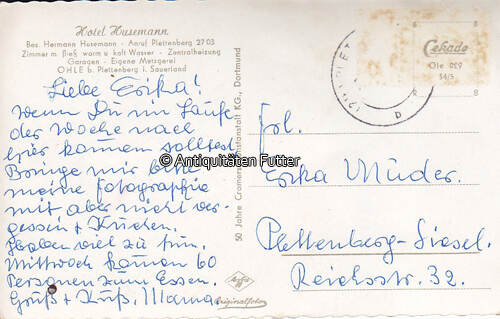 Hotel Husemann
Bes. Hermann Husemann - Anruf Plettenberg 27 03
Zimmer m. fließ. warm u. kalt Wasser - Zentralheizung
Garagen - Eigene Metzgerei
OHLE b. Plettenberg i. Sauerland
Liebe Erika!
wenn Du im Laufe
der Woche nach
hier kommen solltest
Bringe mir bitte
meine Fotographie
mit aber nicht ver-
gessen + Kuchen.
Haben viel zu tun.
Mittwoch kamen 60
Personen zum Essen.
Gruß + Kuß, Mama
50 Jahre Cramers Kunstanstalt KG., Dortmund
Agfa
Originalfoto
Cekade
Ole 029
54/5
Frl.
Erika Müder.
Plettenberg-Siesel.
Reichsstr. 32.
© Antiquitäten Futter